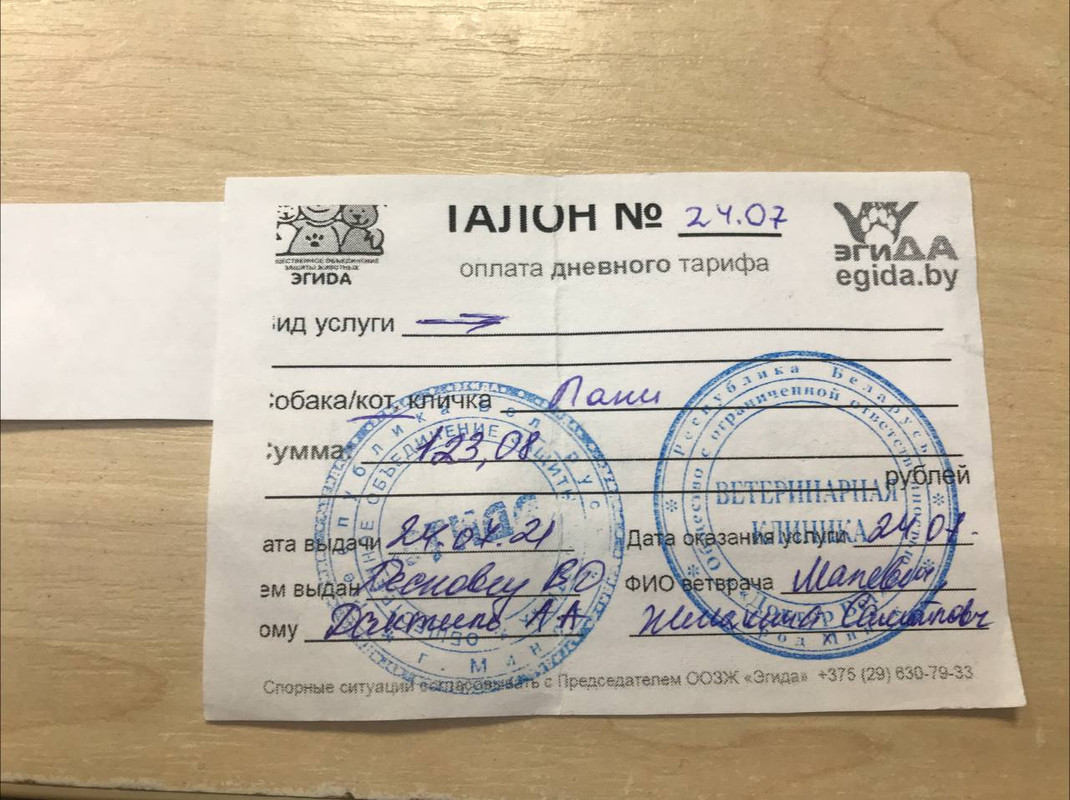 ТАЛОН № 24.07
оплата дневного тарифа
ЩЕСТВЕННОЕ ОБЪЕДИНЕНИЕ
ЗАЩИТЫ ЖИВОТНЫХ
ЭГИDА
эгиDA
egida.by
ид услуги
обака/кот кличка Пани
умма: 123,08
рублей
ата выдачи 24.07.21
Дата оказания услуги 24.07.
ем выдан ВД
ФИО ветврача
ому АА
Спорные ситуации согласовывать с Председателем ООЗЖ «Эгида» +375 (29) 630-79-33
Республика Беларусь
Общество с ограниченной ответственностью
ВЕТЕРИНАРНАЯ
КЛИНИКА